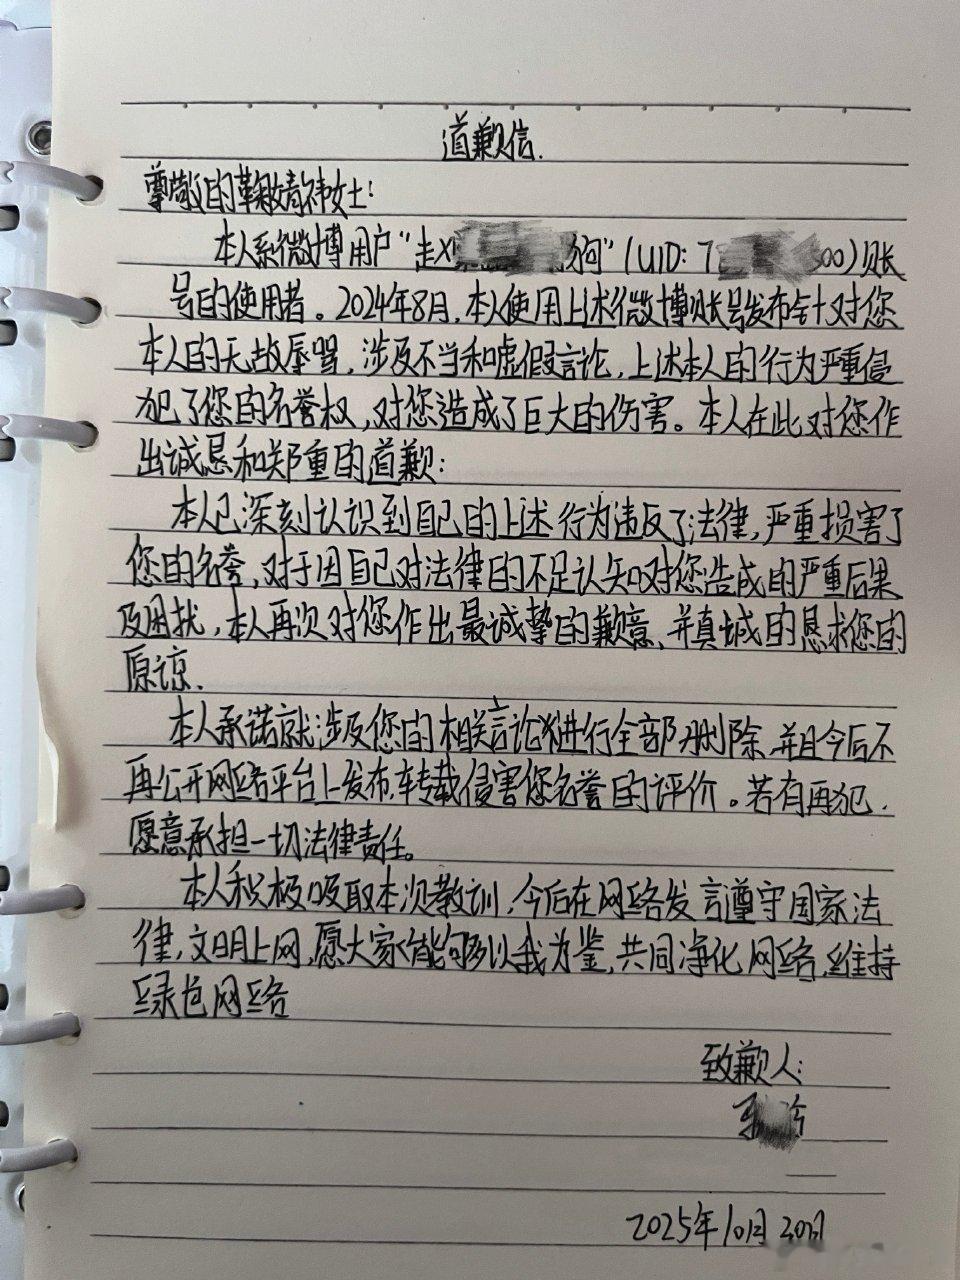 道歉信.
尊敬的鞠婧祎女士：
本人系微博用户“赵X 狗”（UID：7 00）账
号的使用者。2024年8月，本人使用上述微博账号发布针对您
本人的无故辱骂，涉及不当和虚假言论，上述本人的行为严重侵
犯了您的名誉权，对您造成了巨大的伤害。本人在此对您作
出诚恳和郑重的道歉：
本人已深刻认识到自己的上述行为违反了法律，严重损害了
您的名誉，对于因自己对法律的不足认知对您造成的严重后果
及困扰，本人再次对您作出最诚挚的歉意、并真诚的恳求您的
原谅.
本人承诺就涉及您的相关言论进行全部删除，并且今后不
再公开网络平台上发布、转载侵害您名誉的评价。若有再犯，
愿意承担一切法律责任。
本人积极吸取本次教训，今后在网络发言遵守国家法
律，文明上网，愿大家能够以我为鉴，共同净化网络，维持
绿色网络
致歉人：
2025年10月30日